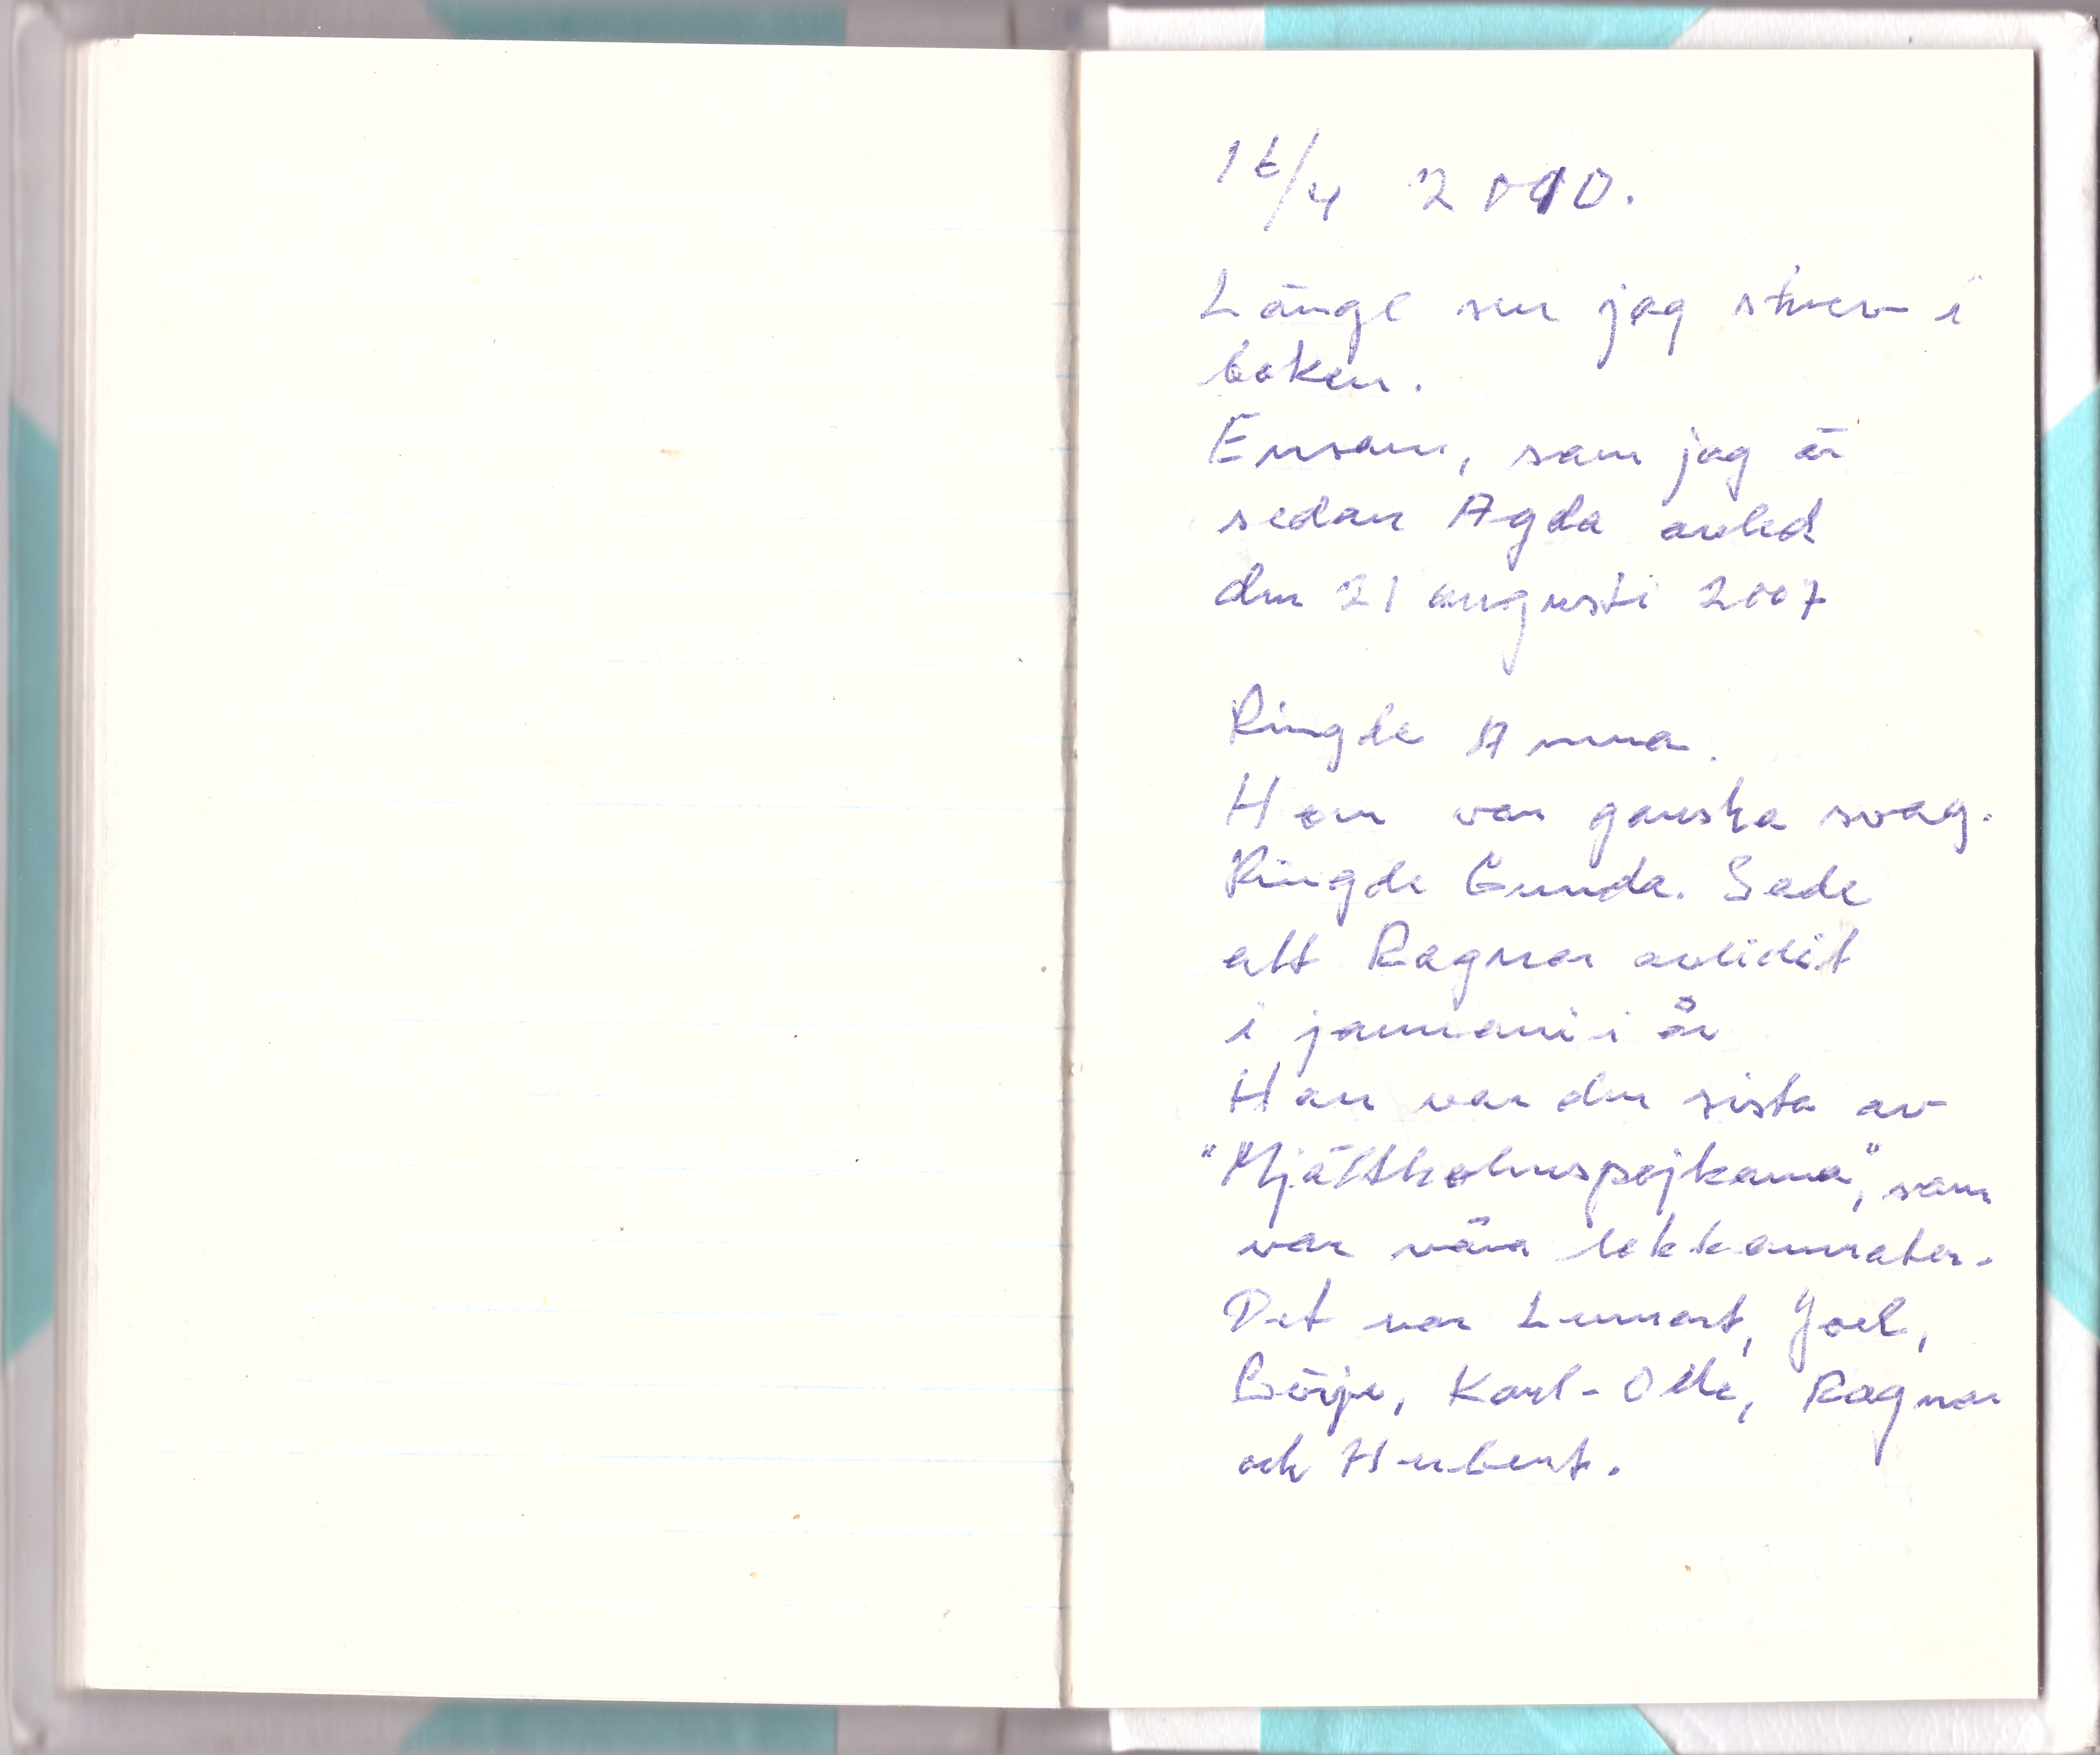 16/4 2010.
Länge sen jag skrev i
boken.
Ensam, som jag är
sedan Agda avled
den 21 augusti 2007
Ringde Anna.
Hon var ganska svag.
Ringde Gunda. Sade
att Ragnar avlidit
i januari i år
Han var den sista av
"Mjältholmspojkarna", som
var våra lekkamrater.
Det var Lennart, Joel,
Börje, Karl-Olle, Ragnar
och Hubert.